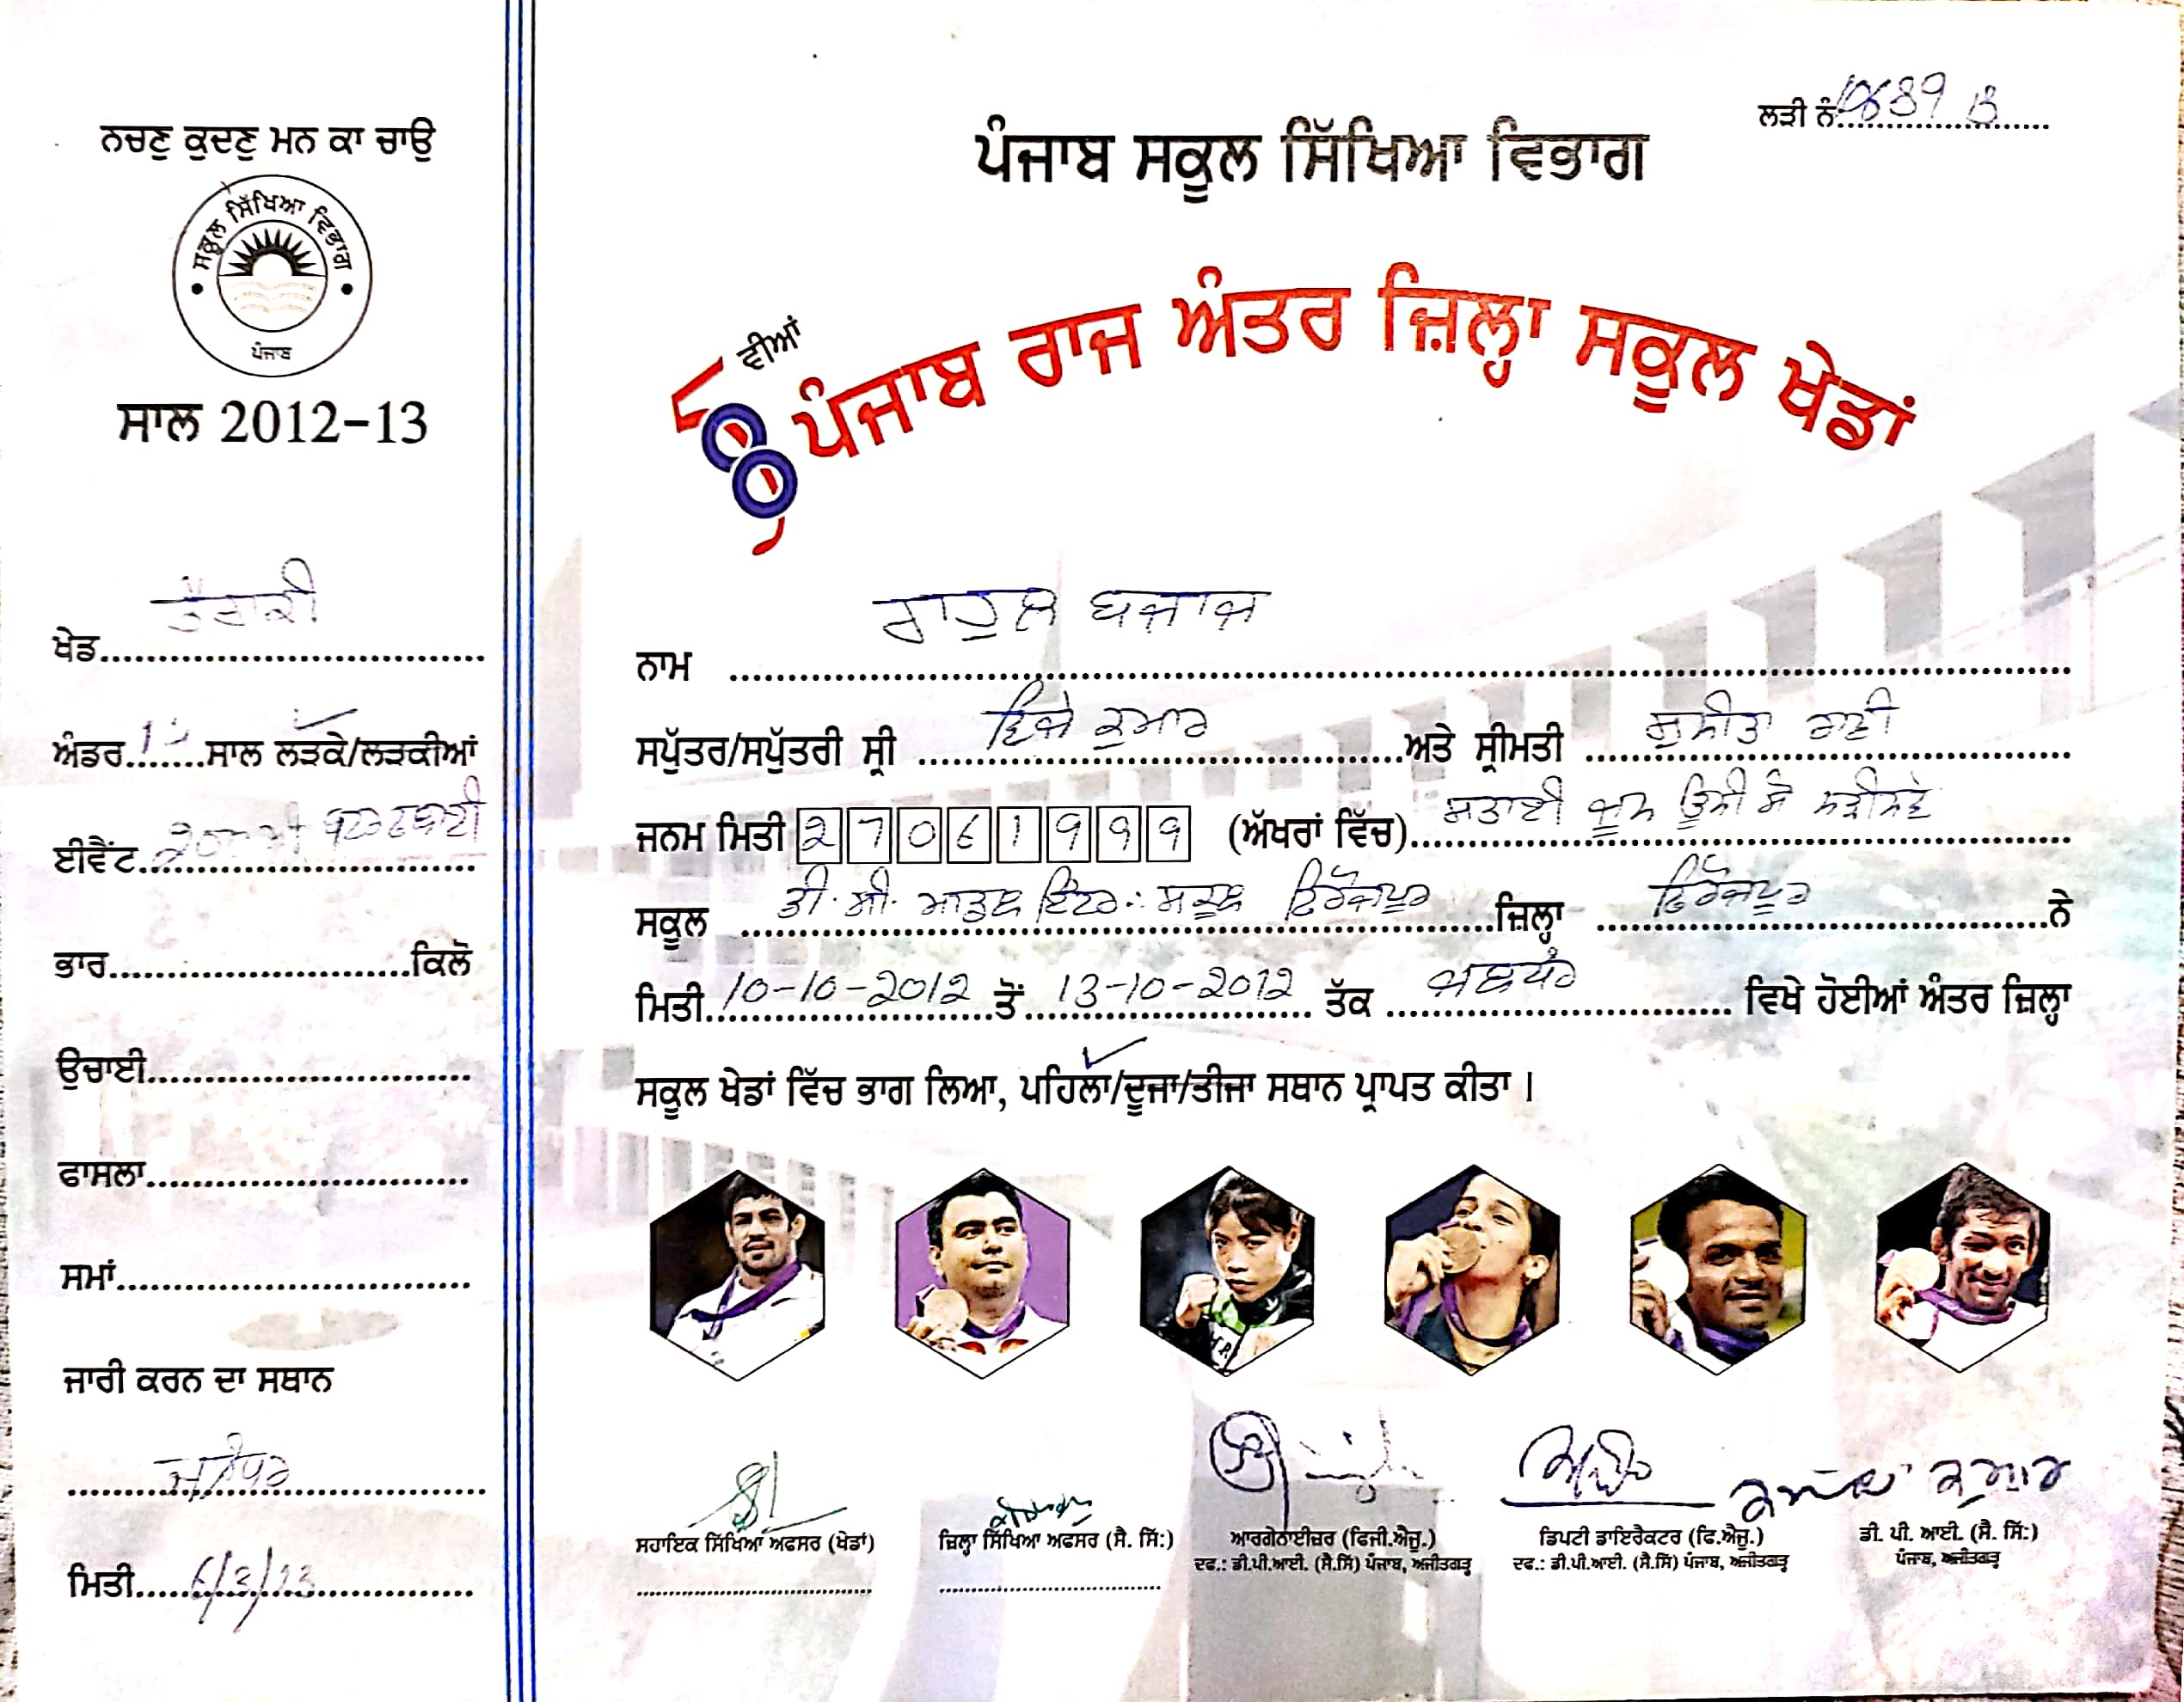 ਨਚਣੁ ਕੁਦਣੁ ਮਨ ਕਾ ਚਾਉ
ਸਕੂਲ ਸਿੱਖਿਆ ਵਿਭਾਗ
ਪੰਜਾਬ
ਸਾਲ 2012-13
ਖੇਡ ਤੈਰਾਕੀ
ਅੰਡਰ ਸਾਲ ਲੜਕੇ/ਲੜਕੀਆਂ
ਈਵੈਂਟ
ਭਾਰ ਕਿਲੋ
ਉਚਾਈ
ਫਾਸਲਾ
ਸਮਾਂ
ਜਾਰੀ ਕਰਨ ਦਾ ਸਥਾਨ
ਜਲੰਧਰ
ਮਿਤੀ
ਲੜੀ ਨੰ.
ਪੰਜਾਬ ਸਕੂਲ ਸਿੱਖਿਆ ਵਿਭਾਗ
58 ਵੀਆਂ ਪੰਜਾਬ ਰਾਜ ਅੰਤਰ ਜ਼ਿਲ੍ਹਾ ਸਕੂਲ ਖੇਡਾਂ
ਨਾਮ ਰਾਹੁਲ ਬਜਾਜ
ਸਪੁੱਤਰ/ਸਪੁੱਤਰੀ ਸ੍ਰੀ ਵਿਜੇ ਕੁਮਾਰ ਅਤੇ ਸ੍ਰੀਮਤੀ ਸੁਨੀਤਾ ਰਾਣੀ
ਜਨਮ ਮਿਤੀ 27061999 (ਅੱਖਰਾਂ ਵਿੱਚ) ਸਤਾਈ ਜੂਨ ਉਨੀ ਸੌ
ਸਕੂਲ ਡੀ.ਸੀ. ਮਾਡਲ ਇੰਟਰ: ਸਕੂਲ ਫਿਰੋਜਪੁਰ ਜ਼ਿਲ੍ਹਾ ਫਿਰੋਜਪੁਰ ਨੇ
ਮਿਤੀ 10-10-2012 ਤੋਂ 13-10-2012 ਤੱਕ ਜਲੰਧਰ ਵਿਖੇ ਹੋਈਆਂ ਅੰਤਰ ਜ਼ਿਲ੍ਹਾ
ਸਕੂਲ ਖੇਡਾਂ ਵਿੱਚ ਭਾਗ ਲਿਆ, ਪਹਿਲਾ/ਦੂਜਾ/ਤੀਜਾ ਸਥਾਨ ਪ੍ਰਾਪਤ ਕੀਤਾ ।
ਸਹਾਇਕ ਸਿੱਖਿਆ ਅਫਸਰ (ਖੇਡਾਂ)
ਜ਼ਿਲ੍ਹਾ ਸਿੱਖਿਆ ਅਫਸਰ (ਸੈ. ਸਿੱ:)
ਆਰਗੇਨਾਈਜ਼ਰ (ਫਿਜੀ.ਐਜੂ.)
ਦਫ.: ਡੀ.ਪੀ.ਆਈ. (ਸੈ.ਸਿੱ) ਪੰਜਾਬ, ਅਜੀਤਗੜ੍ਹ
ਡਿਪਟੀ ਡਾਇਰੈਕਟਰ (ਫਿ.ਐਜੂ.)
ਦਫ.: ਡੀ.ਪੀ.ਆਈ. (ਸੈ.ਸਿੱ) ਪੰਜਾਬ, ਅਜੀਤਗੜ੍ਹ
ਕਮਲ ਕੁਮਾਰ
ਡੀ. ਪੀ. ਆਈ. (ਸੈ. ਸਿੱ:)
ਪੰਜਾਬ, ਅਜੀਤਗੜ੍ਹ